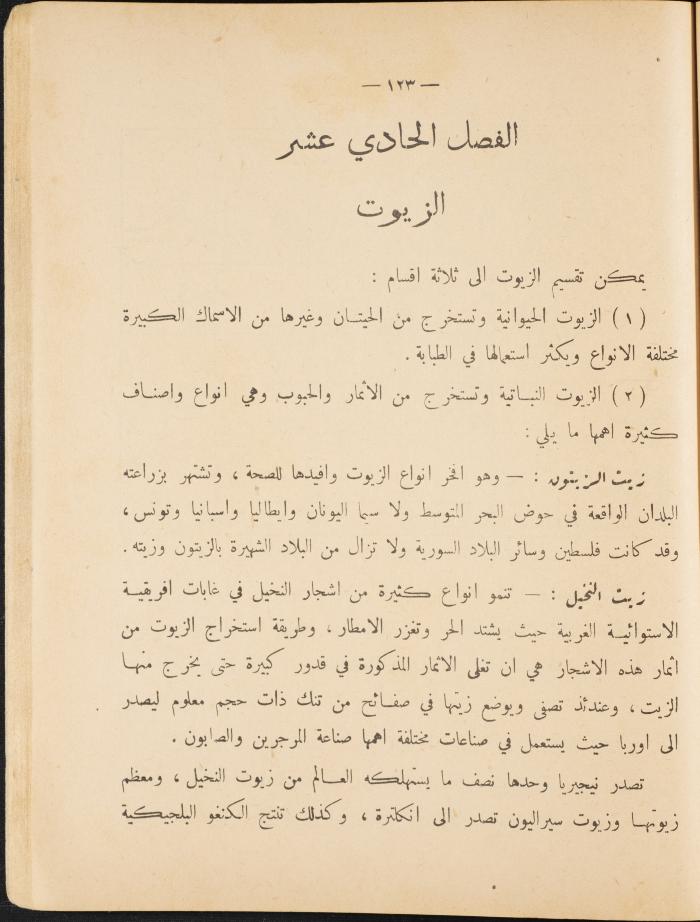 — ١٢٣ —
الفصل الحادي عشر
الزيوت
يمكن تقسيم الزيوت الى ثلاثة اقسام :
( ١ ) الزيوت الحيوانية وتستخرج من الحيتان وغيرها من الاسماك الكبيرة
مختلفة الانواع ويكثر استعمالها في الطبابة .
( ٢ ) الزيوت النباتية وتستخرج من الاثمار والحبوب وهي انواع واصناف
كثيرة اهمها ما يلي :
زيت الزيتون : — وهو افخر انواع الزيوت وافيدها للصحة ، وتشتهر بزراعته
البلدان الواقعة في حوض البحر المتوسط ولا سيما اليونان وايطاليا واسبانيا وتونس ،
وقد كانت فلسطين وسائر البلاد السورية ولا تزال من البلاد الشهيرة بالزيتون وزيته .
زيت النخيل : — تنمو انواع كثيرة من اشجار النخيل في غابات افريقية
الاستوائية الغربية حيث يشتد الحر وتغزر الامطار ، وطريقة استخراج الزيوت من
اثمار هذه الاشجار هي ان تغلى الاثمار المذكورة في قدور كبيرة حتى يخرج منها
الزيت ، وعندئذ تصفى ويوضع زيتها في صفائح من تنك ذات حجم معلوم ليصدر
الى اوربا حيث يستعمل في صناعات مختلفة اهمها صناعة المرجرين والصابون .
تصدر نيجيريا وحدها نصف ما يستهلكه العالم من زيوت النخيل ، ومعظم
زيوتها وزيوت سيراليون تصدر الى انكلترة ، وكذلك تنتج الكنغو البلجيكية